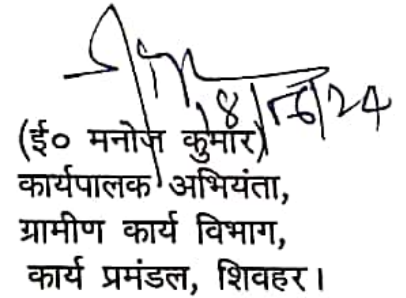 (ई० मनोज कुमार)
कार्यपालक अभियंता,
ग्रामीण कार्य विभाग,
कार्य प्रमंडल, शिवहर।